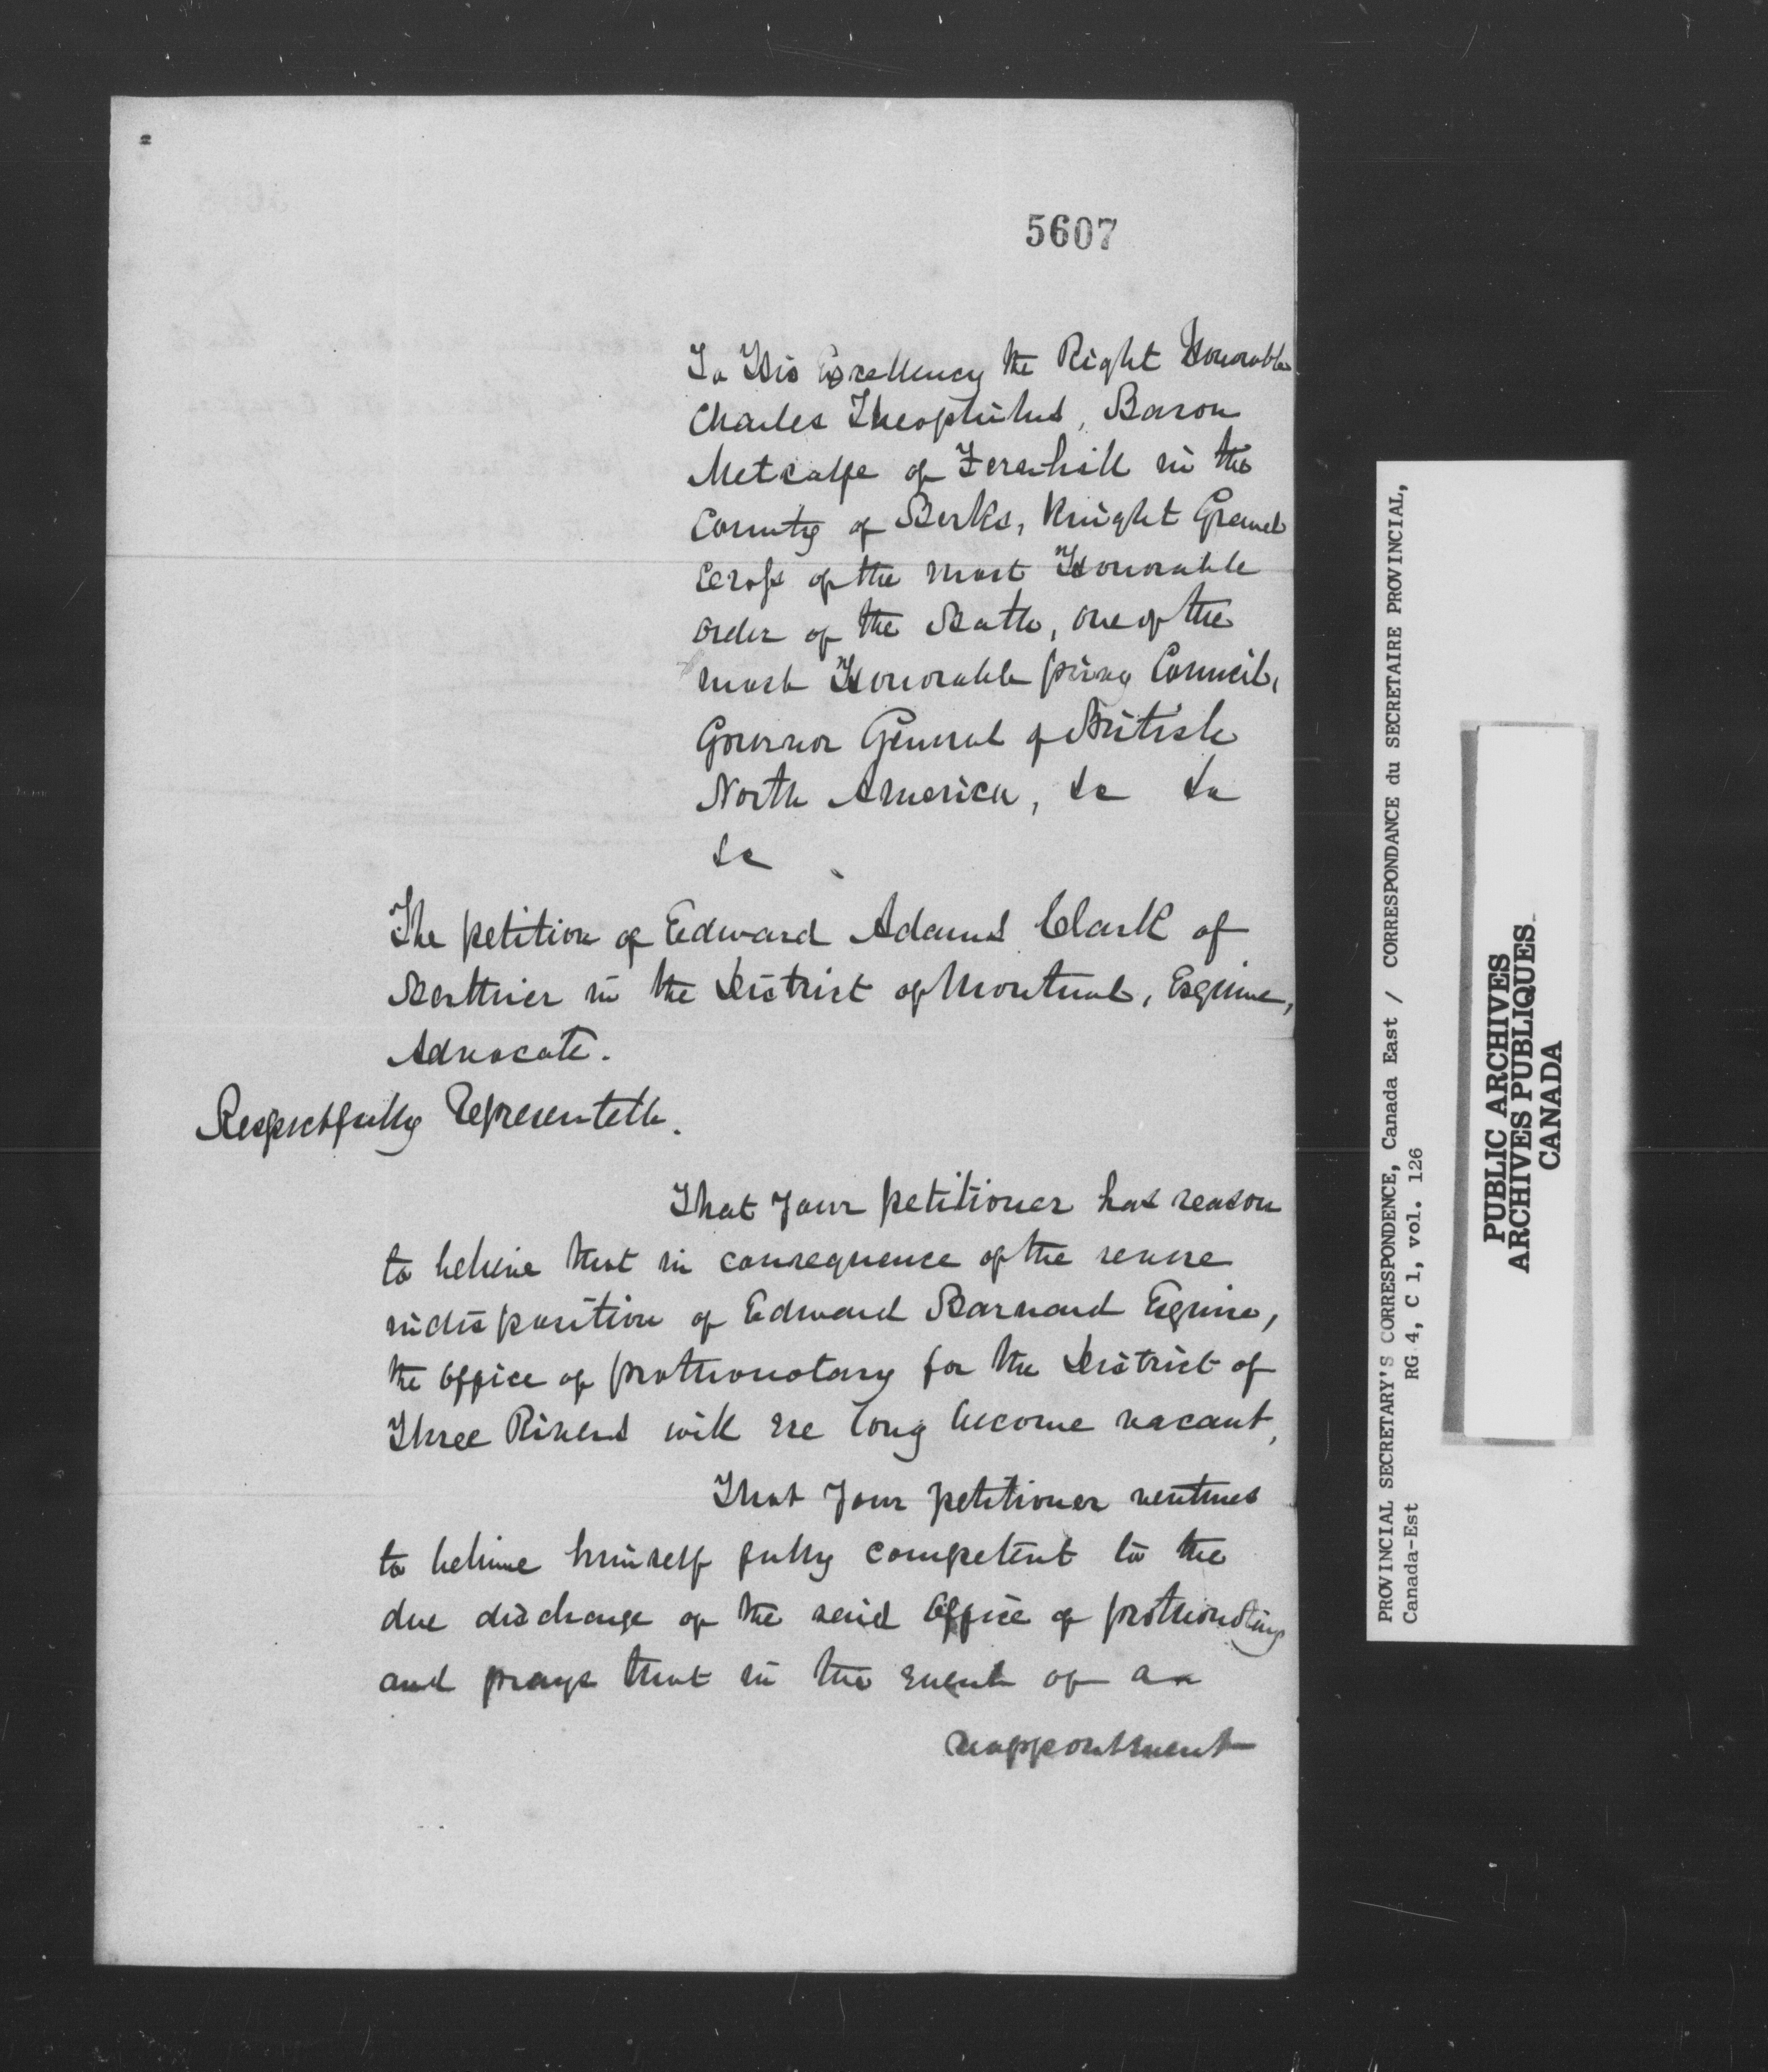 5607
To His Excellency the Right Honorable
Charles Theophilus, Baron
Metcalfe of Fernhill in the
County of Berks, Knight Grand
Cross of the most Honorable
order of the Bath, one of the
most Honorable privy Council,
Governor General of British
North America, &c &c
&c
The petition of Edward Adams Clark of
Berthier in the District of Montreal, Esquire,
Advocate.
Respectfully Representeth.
That Your petitioner has reason
to believe that in consequence of the severe
indisposition of Edward Barnard Esquire,
the office of prothonotary for the District of
Three Rivers will ere long become vacant,
That Your petitioner ventures
to believe himself fully competent to the
due discharge of the said office of prothonotary
and prays that in the event of a
reappointment
PROVINCIAL SECRETARY'S CORRESPONDENCE, Canada East / CORRESPONDANCE du SECRETAIRE PROVINCIAL,
Canada-Est RG 4, C 1, vol. 126
PUBLIC ARCHIVES
ARCHIVES PUBLIQUES
CANADA